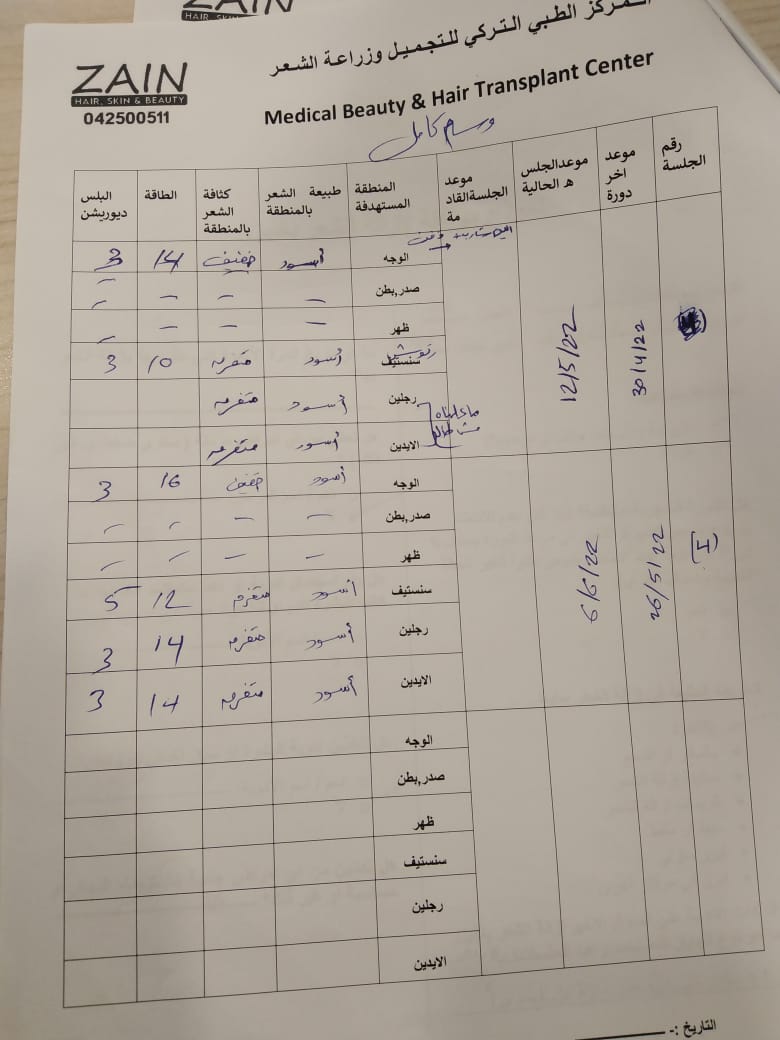 ZAIN
HAIR, SKIN & BEAUTY
042500511
المركز الطبي التركي للتجميل وزراعة الشعر
Medical Beauty & Hair Transplant Center
وسام كامل
رقم الجلسة | موعد اخر دورة | موعدالجلس ه الحالية | موعد الجلسةالقاد مة | المنطقة المستهدفة | طبيعة الشعر بالمنطقة | كثافة الشعر بالمنطقة | الطاقة | البلس ديوريشن
30/4/22 | 12/5/22
الوجه | أسود | خفيف | 14 | 3
صدر,بطن | – | – | – | –
ظهر | – | – | – | –
سنستيف | رتوش | أسود | متفرقه | 10 | 3
رجلين | أسود | متفرقه
الايدين | أسود | متفرقه
(I) | 26/5/22 | 6/6/22
الوجه | أسود | خفيف | 16 | 3
صدر,بطن | – | – | – | –
ظهر | – | – | – | –
سنستيف | أسود | متفرقه | 12 | 5
رجلين | أسود | متفرقه | 14 | 3
الايدين | أسود | متفرقه | 14 | 3
الوجه
صدر,بطن
ظهر
سنستيف
رجلين
الايدين
التاريخ :-